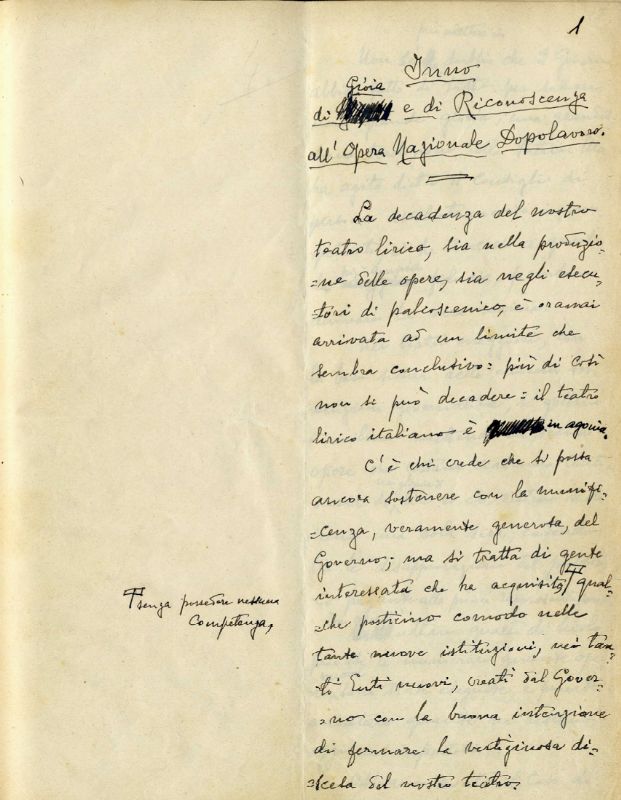 1
Inno
Gioia
di e di Riconoscenza
all' Opera Nazionale Dopolavoro.
La decadenza del nostro
teatro lirico, sia nella produzio-
=ne delle opere, sia negli esecu-
-tori di palcoscenico, è oramai
arrivata ad un limite che
sembra conclusivo: più di così
non si può decadere: il teatro
lirico italiano è in agonia.
C'è chi crede che si possa
ancora sostenere con la munifi-
=cenza, veramente generosa, del
Governo; ma si tratta di gente
interessata che ha acquisito, qual-
-che posticino comodo nelle
tante nuove istituzioni, nei tan-
ti Enti nuovi, creati dal Gover-
=no con la buona intenzione
di fermare la vertiginosa di-
-scesa del nostro teatro.
senza possedere nessuna
Competenza,